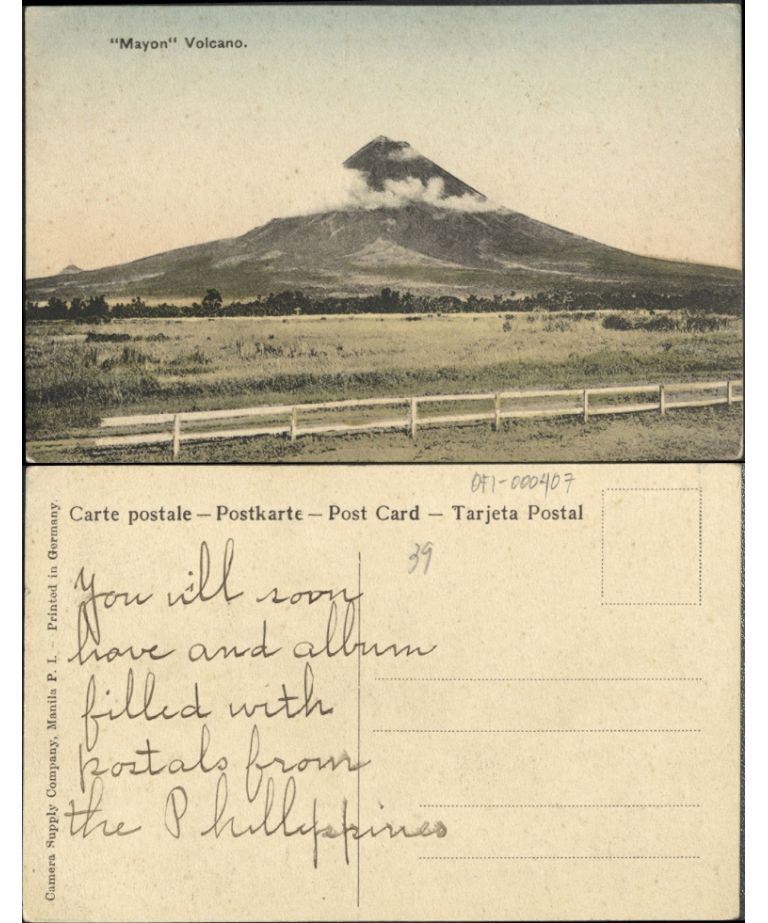 "Mayon" Volcano.
OFI-000407
Carte postale — Postkarte — Post Card — Tarjeta Postal
39
You will soon
have and album
filled with
postals from
the Phillippines
Camera Supply Company, Manila P. I. – Printed in Germany.